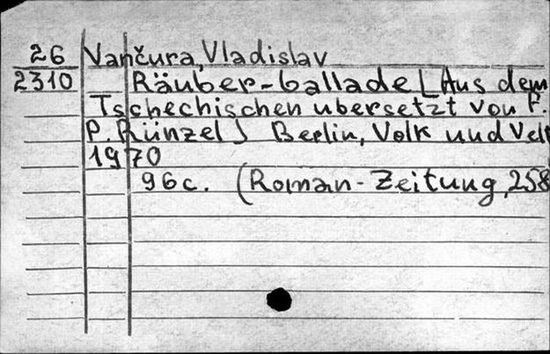 26 Vančura, Vladislav
2310 Räuber-ballade [Aus dem
Tschechischen ubersetzt von F.
P. Künzel] Berlin, Volk und Welt
1970
96 c. (Roman-Zeitung, 258